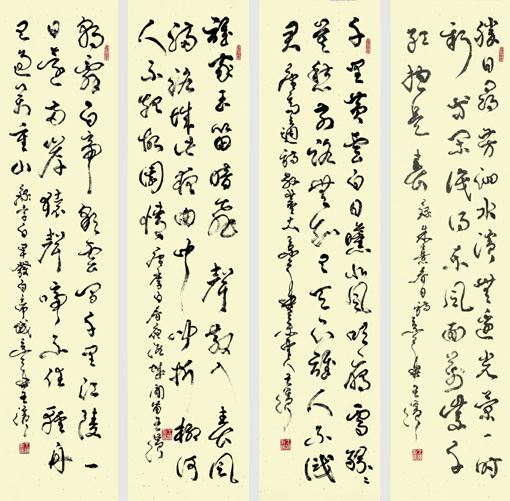 勝日尋芳泗水濱無邊光景一時
新等閑識得東風面萬紫千
紅總是春 錄朱熹春日詩
千里黄雲白日曛北風吹雁雪紛々
莫愁前路無知己天下誰人不識
君 唐高適詩別董大
誰家玉笛暗飛聲散入春風
滿洛城此夜曲中聞折柳何
人不起故園情 唐李白春夜洛城聞笛
朝辭白帝彩雲間千里江陵一
日還兩岸猿聲啼不住輕舟
已過萬重山 錄李白早發白帝城